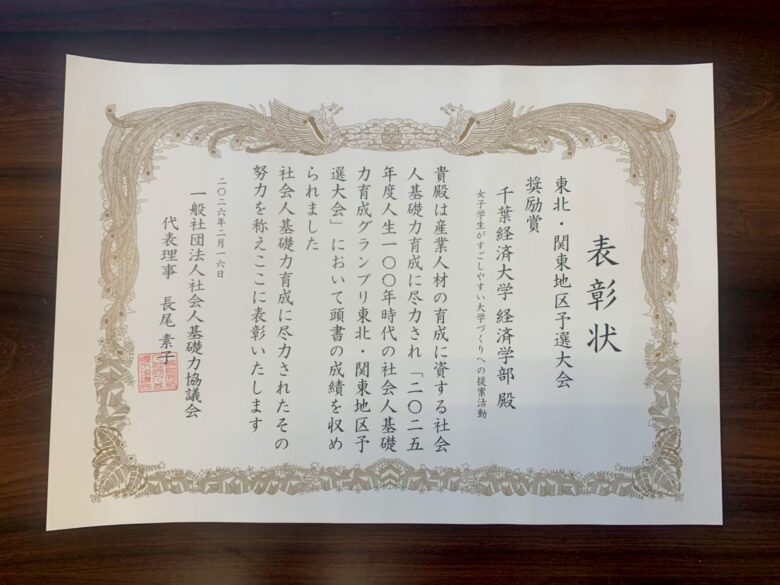 表彰状
東北・関東地区予選大会
奨励賞
千葉経済大学 経済学部 殿
女子学生がすごしやすい大学づくりへの提案活動
貴殿は産業人材の育成に資する社会
人基礎力育成に尽力され 「二〇二五
年度人生一〇〇年時代の社会人基礎
力育成グランプリ東北・関東地区予
選大会」において頭書の成績を収め
られました
社会人基礎力育成に尽力されたその
努力を称えここに表彰いたします
二〇二六年二月一六日
一般社団法人社会人基礎力協議会
代表理事 長尾 素子